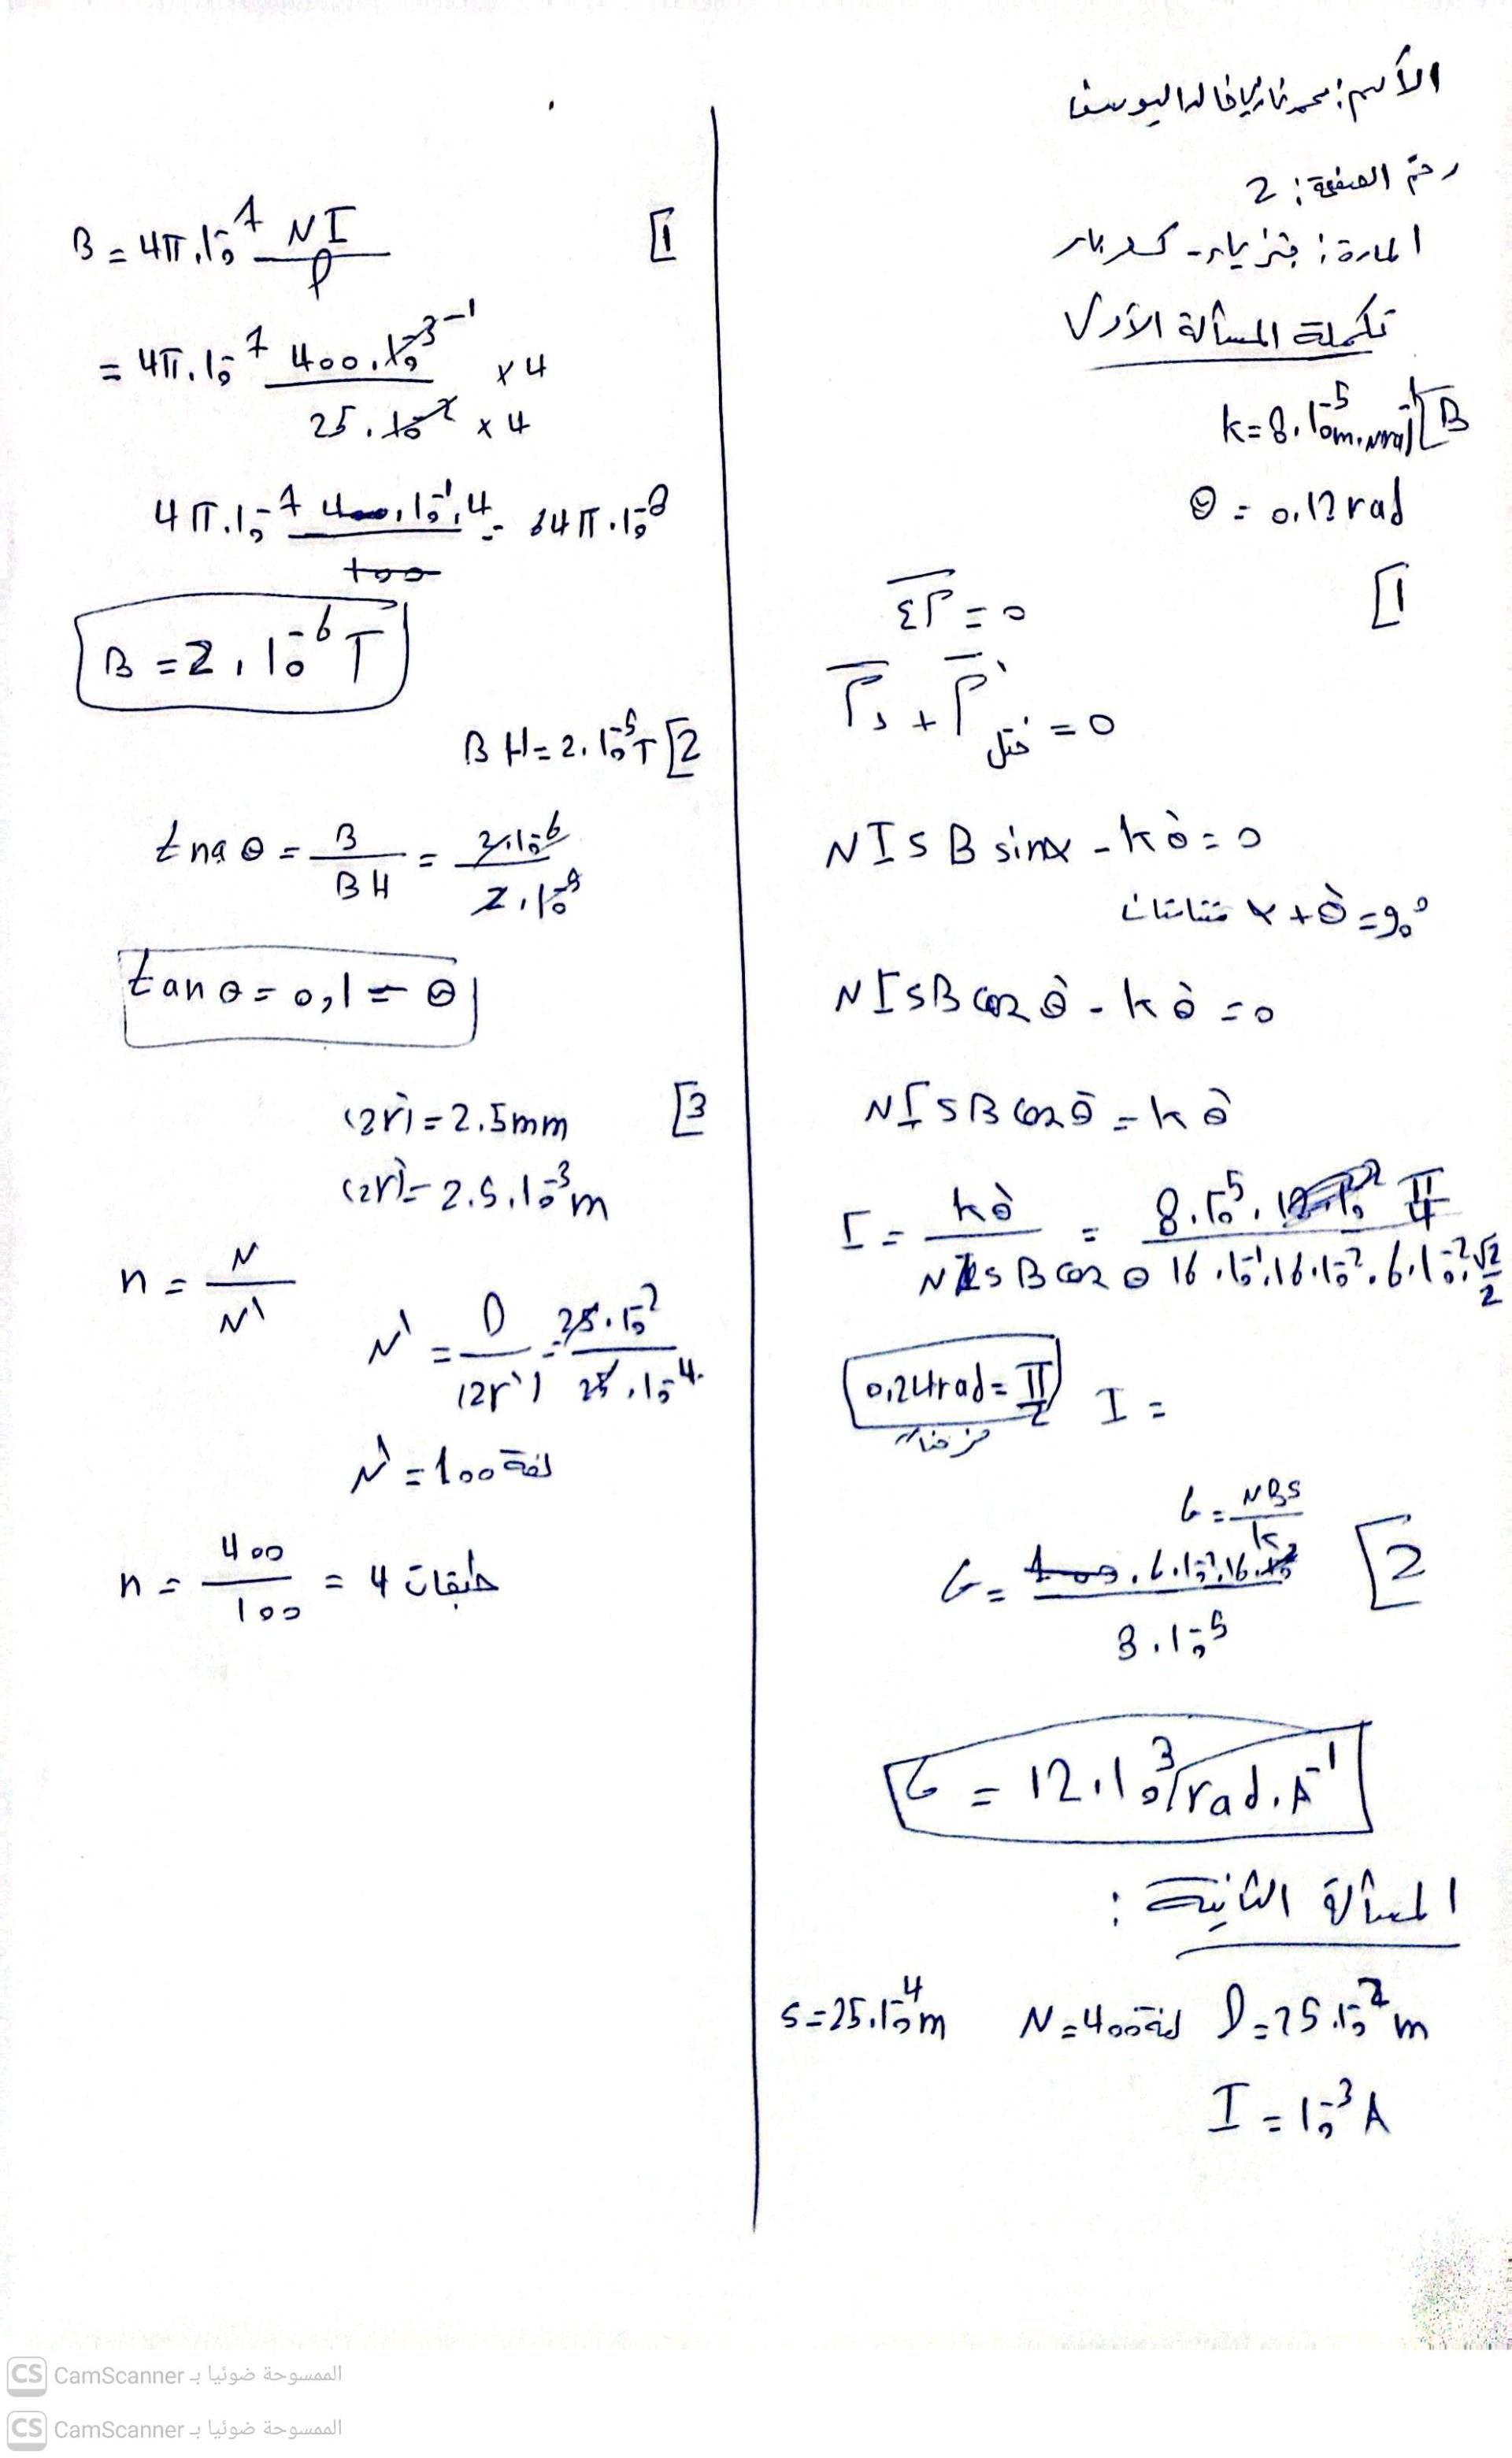 الأسم: محمد اليوسف
رقم الصفحة: 2
المادة: فيزياء - كهرباء
تكملة المسألة الأولى
k = 8.10^-5 m.N.rad^-1 [B
θ = 0.12 rad
[1
Σ Γ = 0
Γ + Γ فتل = 0
N I S B sin α - k θ' = 0
α + θ' = 90° متتامتان
N I S B cos θ' - k θ' = 0
N I S B cos θ' = k θ'
I = kθ' / N S B cos θ = 8.10^-5 . π/4 / 16.10^-1.16.10^-2.6.10^-2.√2/2
0,24 rad = π/2 I =
G = NBS / k
[2
G = 100.6.10^-2.16.10^-2 / 8.10^-5
G = 12.10^3 rad.A^-1
المسألة الثانية:
l = 25.10^-2 m N = 400 لفة S = 25.10^-4 m
I = 10^-3 A
[1
B = 4π.10^-7 NI / l
= 4π.10^-7 400.10^-3 -1 × 4 / 25.10^-2 × 4
4π.10^-7 400.10^-1.4 / 100 = 64π.10^-8
B = 2.10^-6 T
BH = 2.10^-5 T [2
tnaθ = B / BH = 2.10^-6 / 2.10^-5
tan θ = 0,1 = θ
(2r') = 2.5mm [3
(2r') = 2.5.10^-3 m
n = N / N'
N' = l / (2r') = 25.10^-2 / 25.10^-4
N' = 100 لفة
n = 400 / 100 = 4 طبقات
CS الممسوحة ضوئيا بـ CamScanner
CS الممسوحة ضوئيا بـ CamScanner